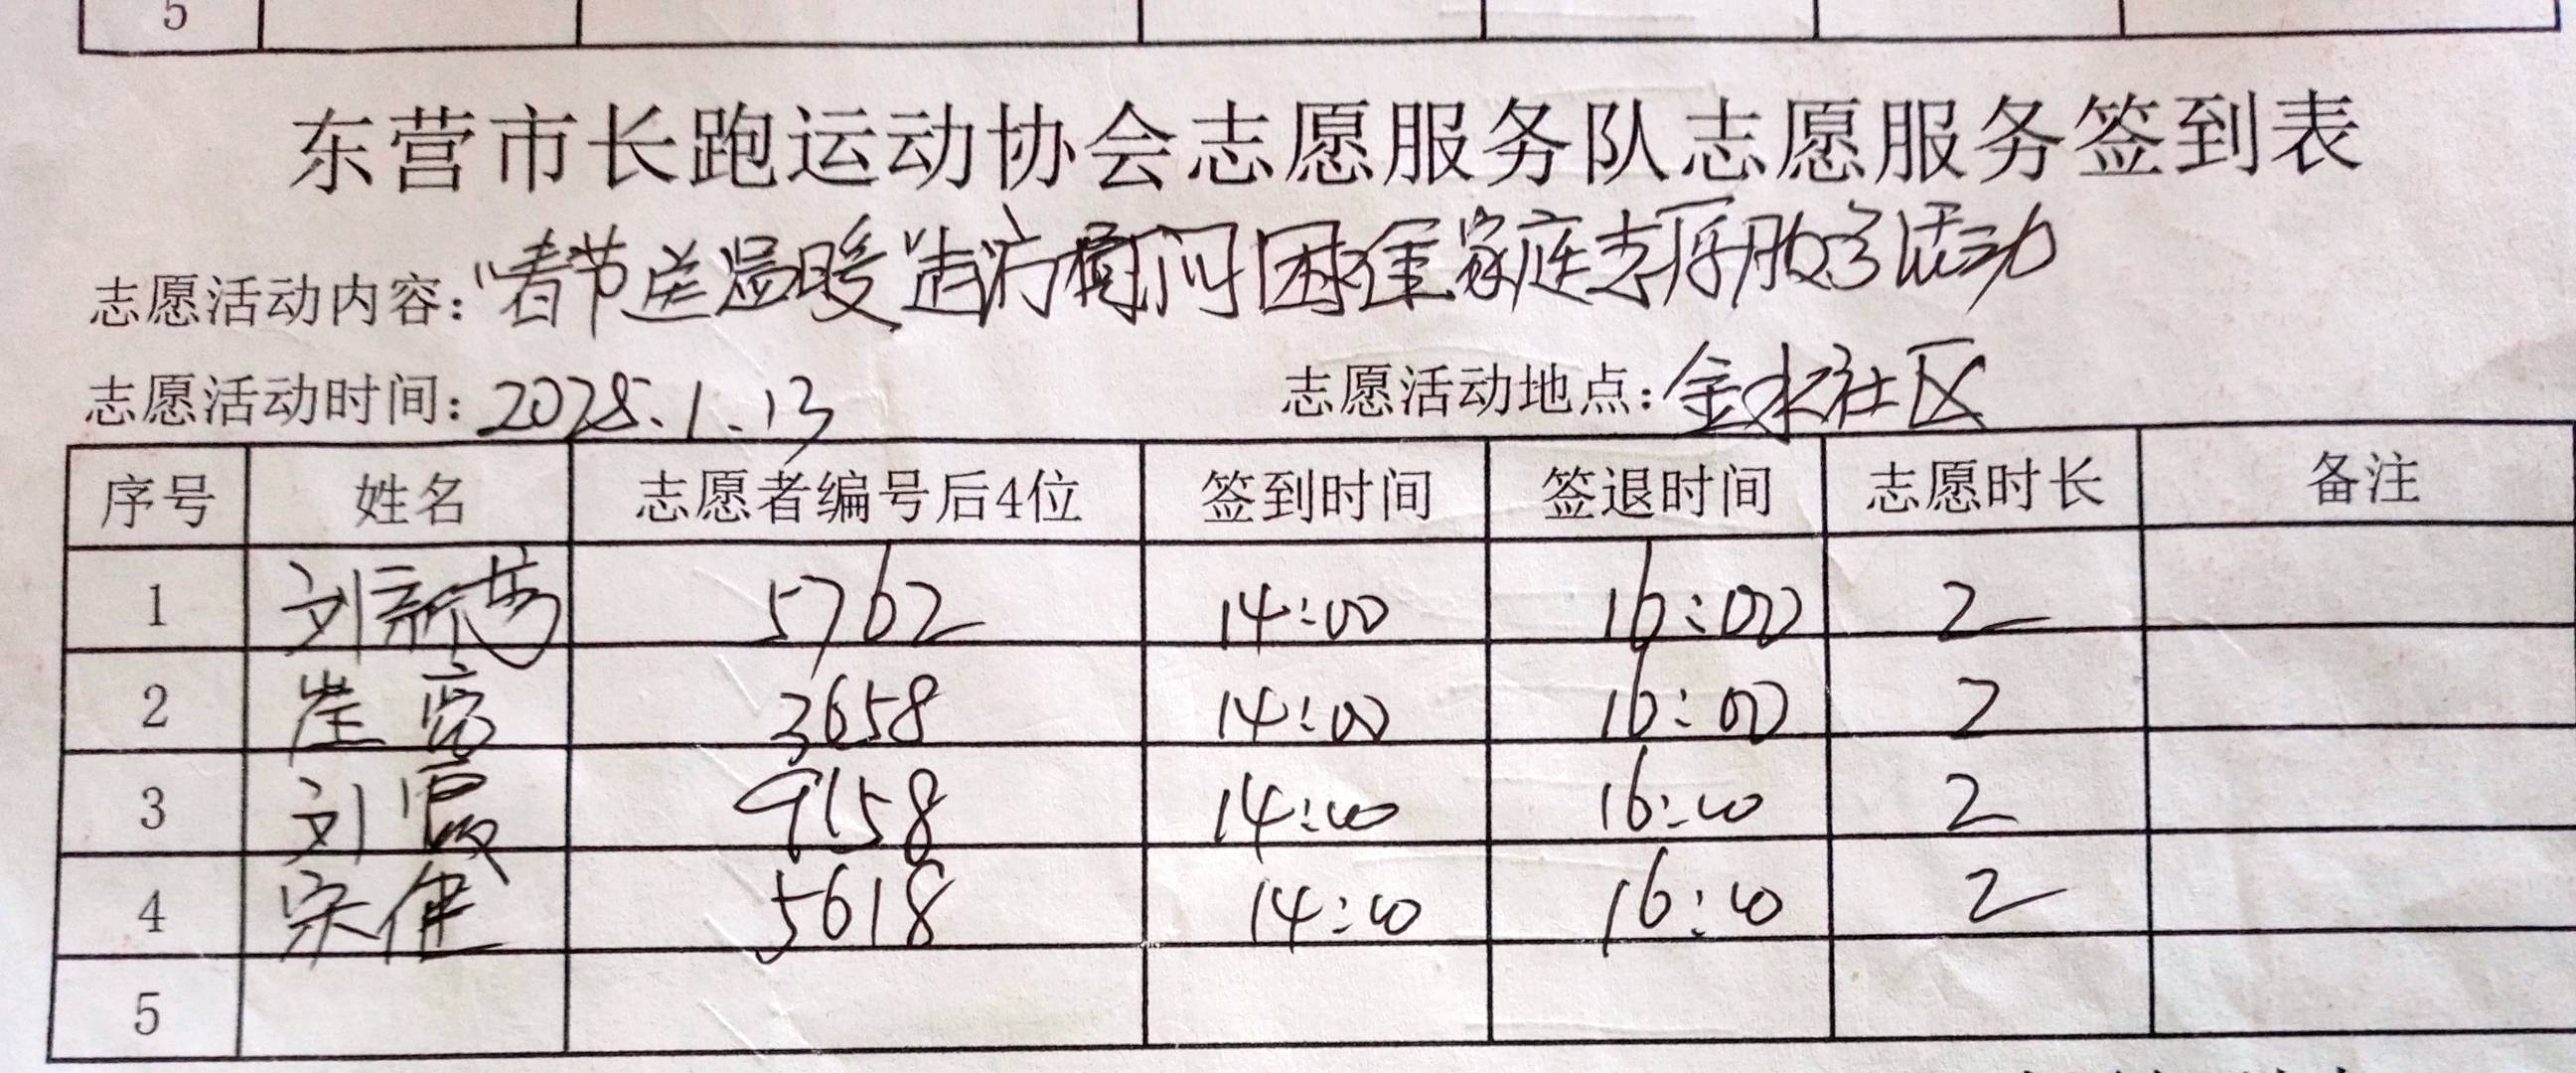 5
东营市长跑运动协会志愿服务队志愿服务签到表
志愿活动内容："春节送温暖"走访慰问困难家庭志愿服务活动
志愿活动时间：2025.1.13 志愿活动地点：金水社区
序号 姓名 志愿者编号后4位 签到时间 签退时间 志愿时长 备注
1 刘新芳 5762 14:00 16:00 2
2 崔亮 3658 14:00 16:00 2
3 刘霞 9158 14:00 16:00 2
4 宋健 5618 14:00 16:00 2
5